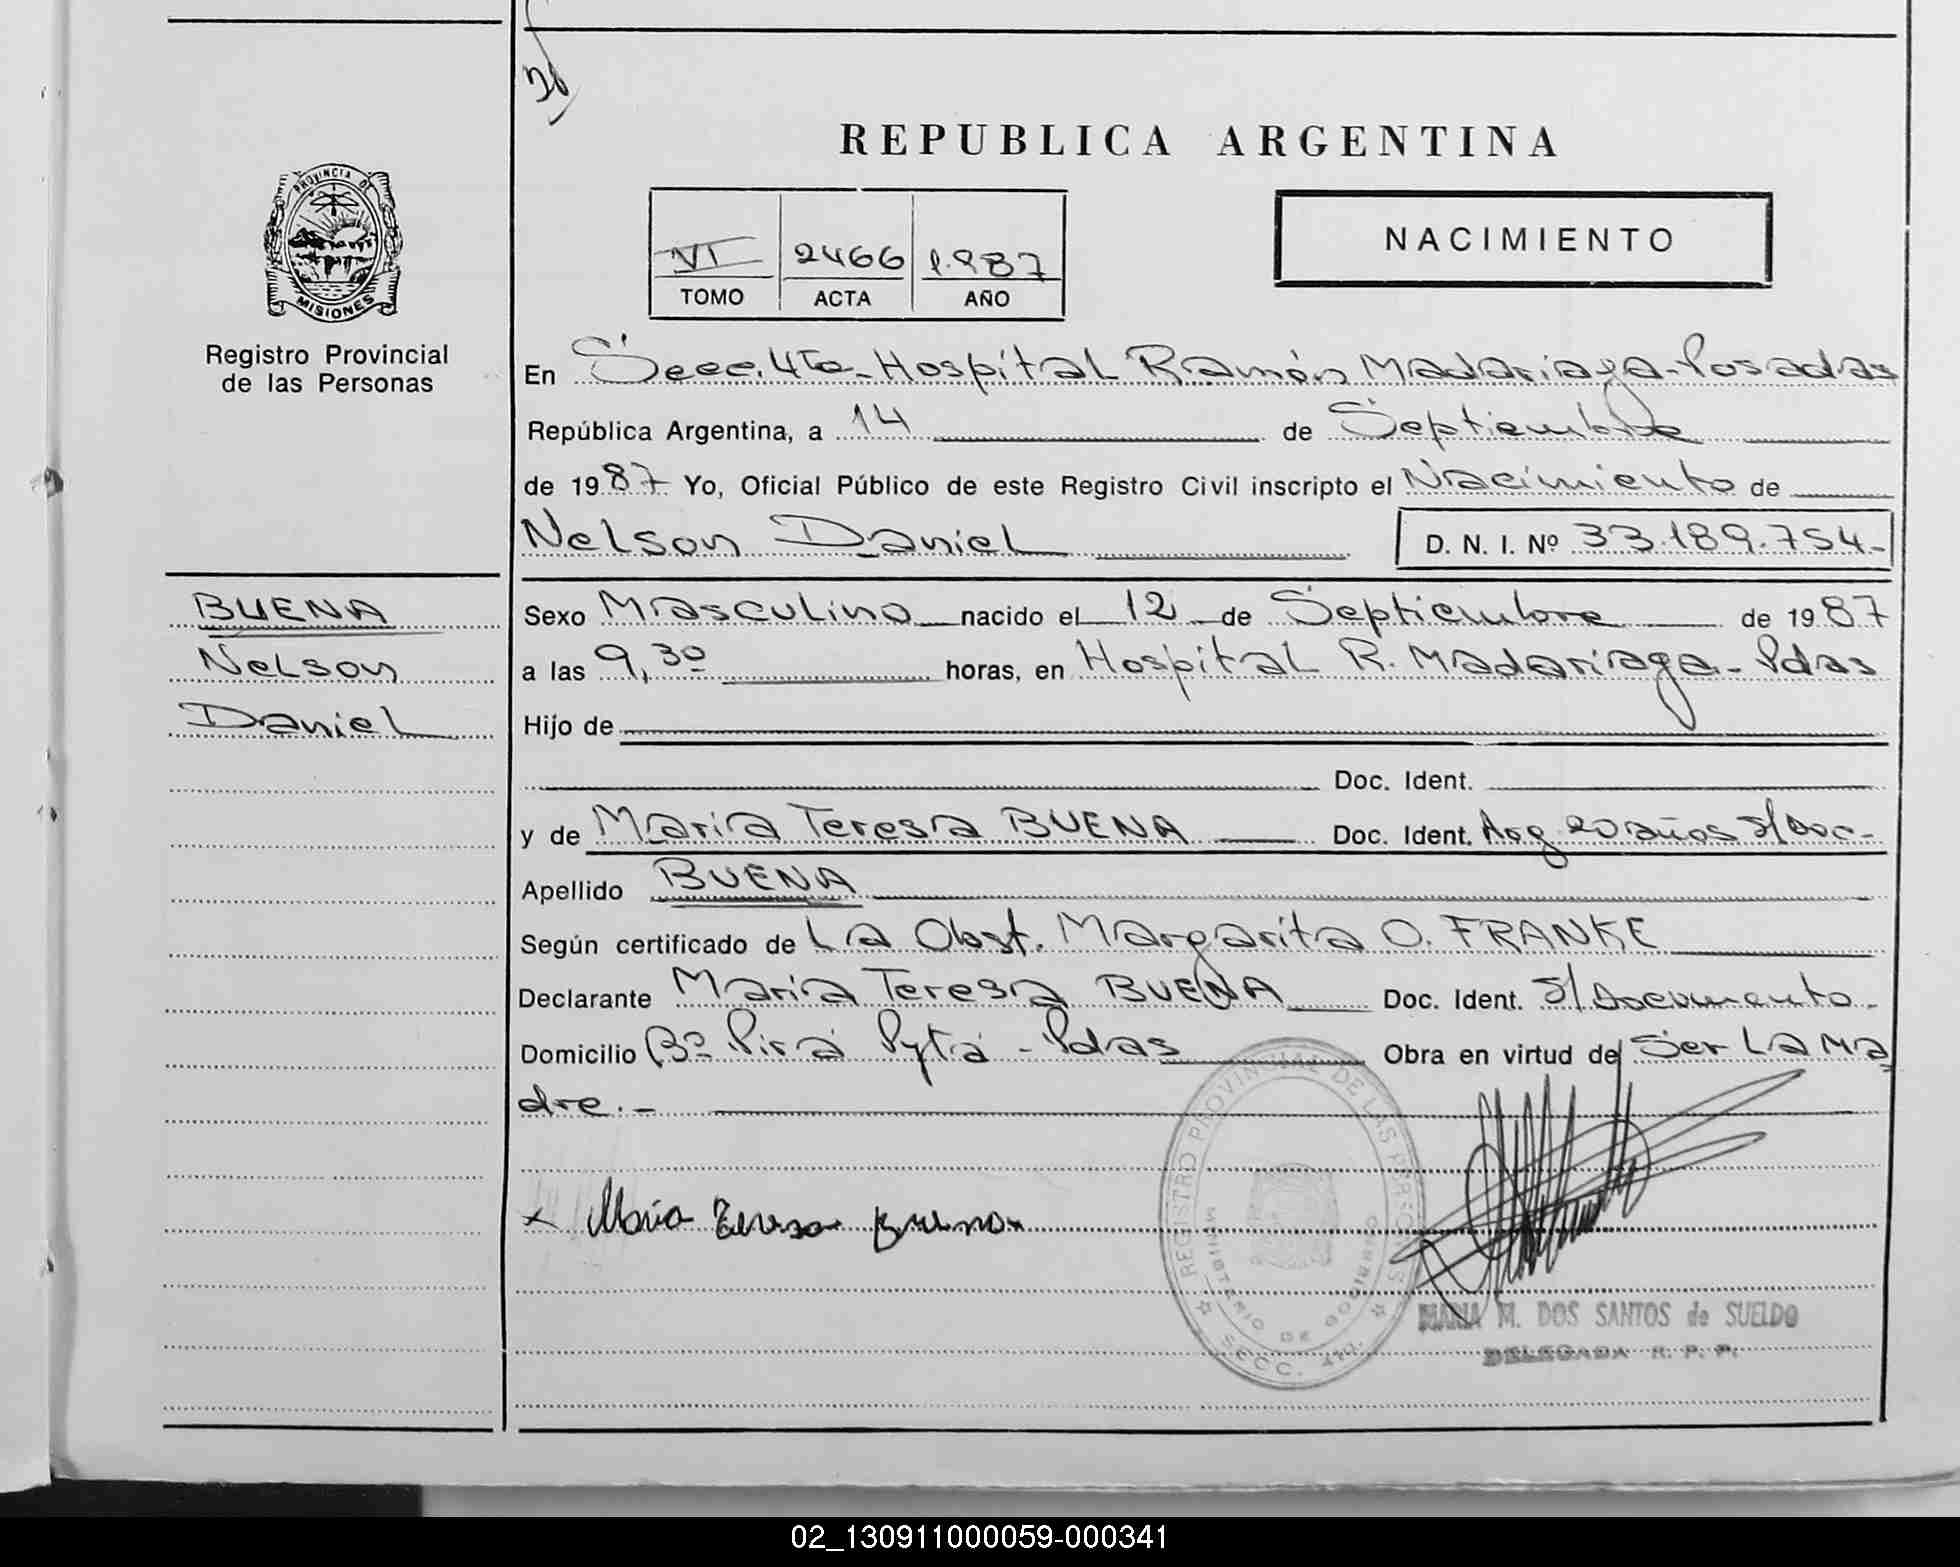 REPUBLICA ARGENTINA
PROVINCIA DE MISIONES
Registro Provincial
de las Personas
VI 2466 1.987
TOMO ACTA AÑO
NACIMIENTO
En Secc. 4ta - Hospital Ramón Madariaga - Posadas
República Argentina, a 14 de Septiembre
de 1987 Yo, Oficial Público de este Registro Civil inscripto el Nacimiento de
Nelson Daniel D. N. I. Nº 33.189.754.-
BUENA
Nelson
Daniel
Sexo Masculino nacido el 12 de Septiembre de 1987
a las 9,30 horas, en Hospital R. Madariaga - Pdas
Hijo de
Doc. Ident.
y de Maria Teresa BUENA Doc. Ident. Arg. 20 años s/Doc.-
Apellido BUENA
Según certificado de La Obst. Margarita O. FRANKE
Declarante Maria Teresa BUENA Doc. Ident. S/Documento.-
Domicilio Bº Pirá Pytá - Pdas Obra en virtud de Ser La Ma
dre.-
x Maria Teresa Buena
REGISTRO PROVINCIAL DE LAS PERSONAS
MINISTERIO DE GOBIERNO
SECC. 4ta.
MARIA M. DOS SANTOS de SUELDO
DELEGADA R. P. P.
02_130911000059-000341